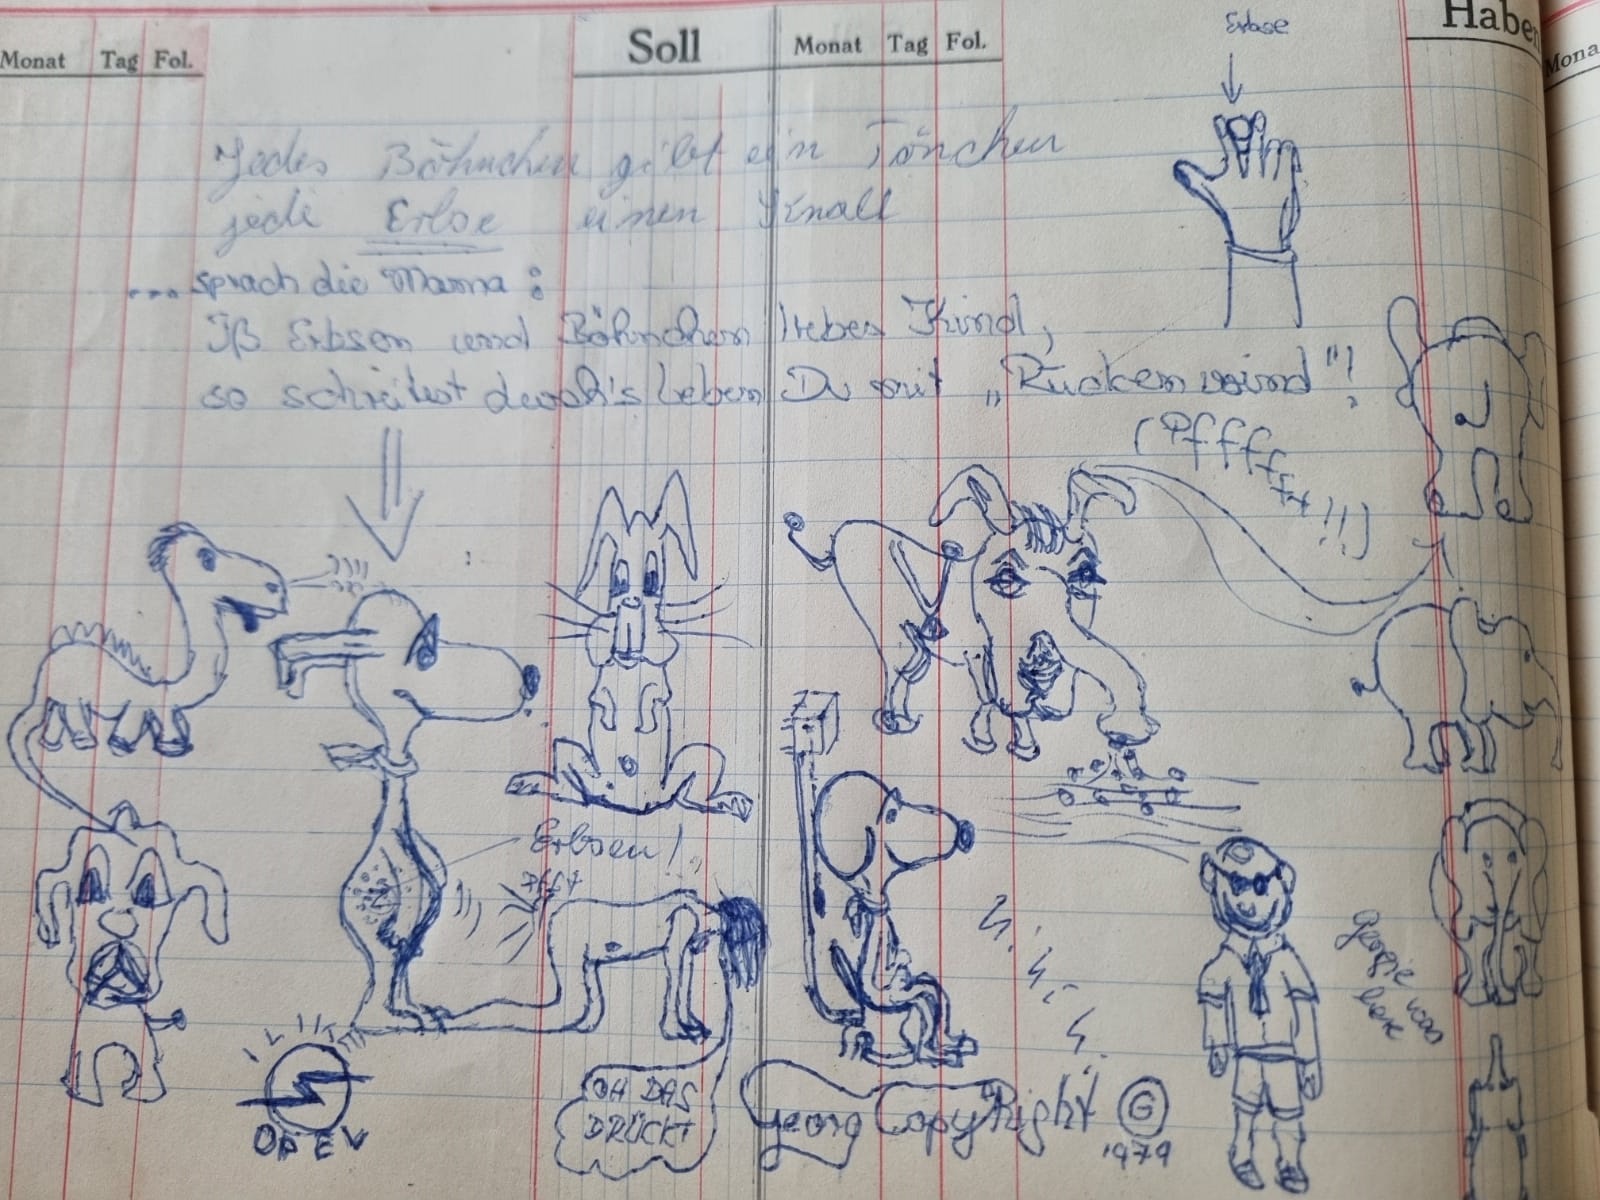 Monat Tag Fol. Soll Monat Tag Fol. Haben Mona
Erbse
Jedes Böhnchen gibt ein Tönchen
jede Erbse einen Knall
... sprach die Mama:
Iß Erbsen und Böhnchen liebes Kind,
so schreitest durch's Leben Du mit „Rückenwind"!
(Pffffff!!!)
Erbsen!
Pfff
OH DAS
DRÜCKT
OPEV
Georg CopyRight G
1979
georgie was
here